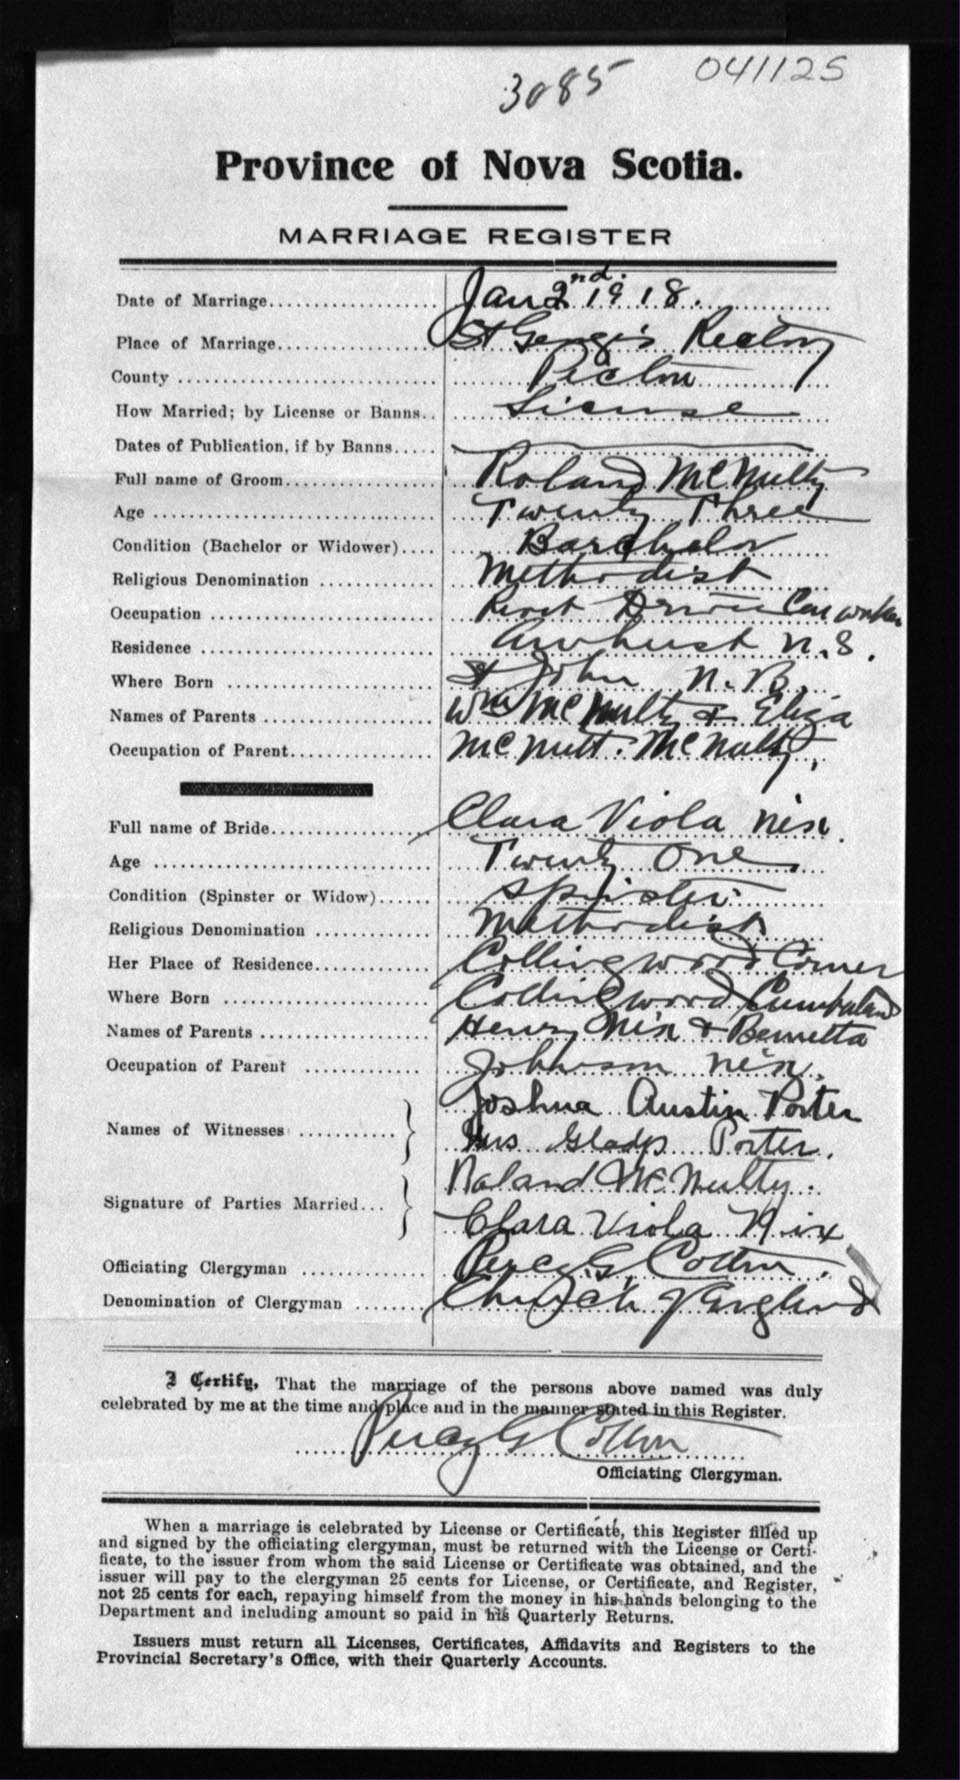 3085
041125
Province of Nova Scotia.
MARRIAGE REGISTER
Date of Marriage Jan 2nd. 1918.
Place of Marriage St George's Rectory
County Pictou
How Married; by License or Banns License
Dates of Publication, if by Banns
Full name of Groom Roland McNulty
Age Twenty Three
Condition (Bachelor or Widower) Barchelor
Religious Denomination Methodist
Occupation Car worker
Residence Amherst N.S.
Where Born St John N.B.
Names of Parents Wm McNulty & Eliza
Occupation of Parent McNutt. McNulty.
Full name of Bride Clara Viola Nix.
Age Twenty One
Condition (Spinster or Widow) Spinster
Religious Denomination Methodist
Her Place of Residence Collingwood Corner
Where Born Collingwood Cumberland
Names of Parents Henry Nix &
Occupation of Parent Johnson Nix.
Names of Witnesses Joshua Austin Porter
Mrs Gladys Porter.
Signature of Parties Married Roland McNulty.
Clara Viola Nix
Officiating Clergyman Percy G. Cotton.
Denomination of Clergyman Church of England
I Certify, That the marriage of the persons above named was duly
celebrated by me at the time and place and in the manner stated in this Register.
Percy G Cotton
Officiating Clergyman.
When a marriage is celebrated by License or Certificate, this Register filled up
and signed by the officiating clergyman, must be returned with the License or Certi-
ficate, to the issuer from whom the said License or Certificate was obtained, and the
issuer will pay to the clergyman 25 cents for License, or Certificate, and Register,
not 25 cents for each, repaying himself from the money in his hands belonging to the
Department and including amount so paid in his Quarterly Returns.
Issuers must return all Licenses, Certificates, Affidavits and Registers to the
Provincial Secretary's Office, with their Quarterly Accounts.